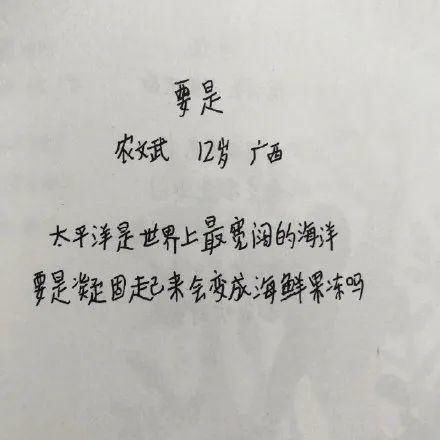 要是
农文武 12岁 广西
太平洋是世界上最宽阔的海洋
要是凝固起来会变成海鲜果冻吗